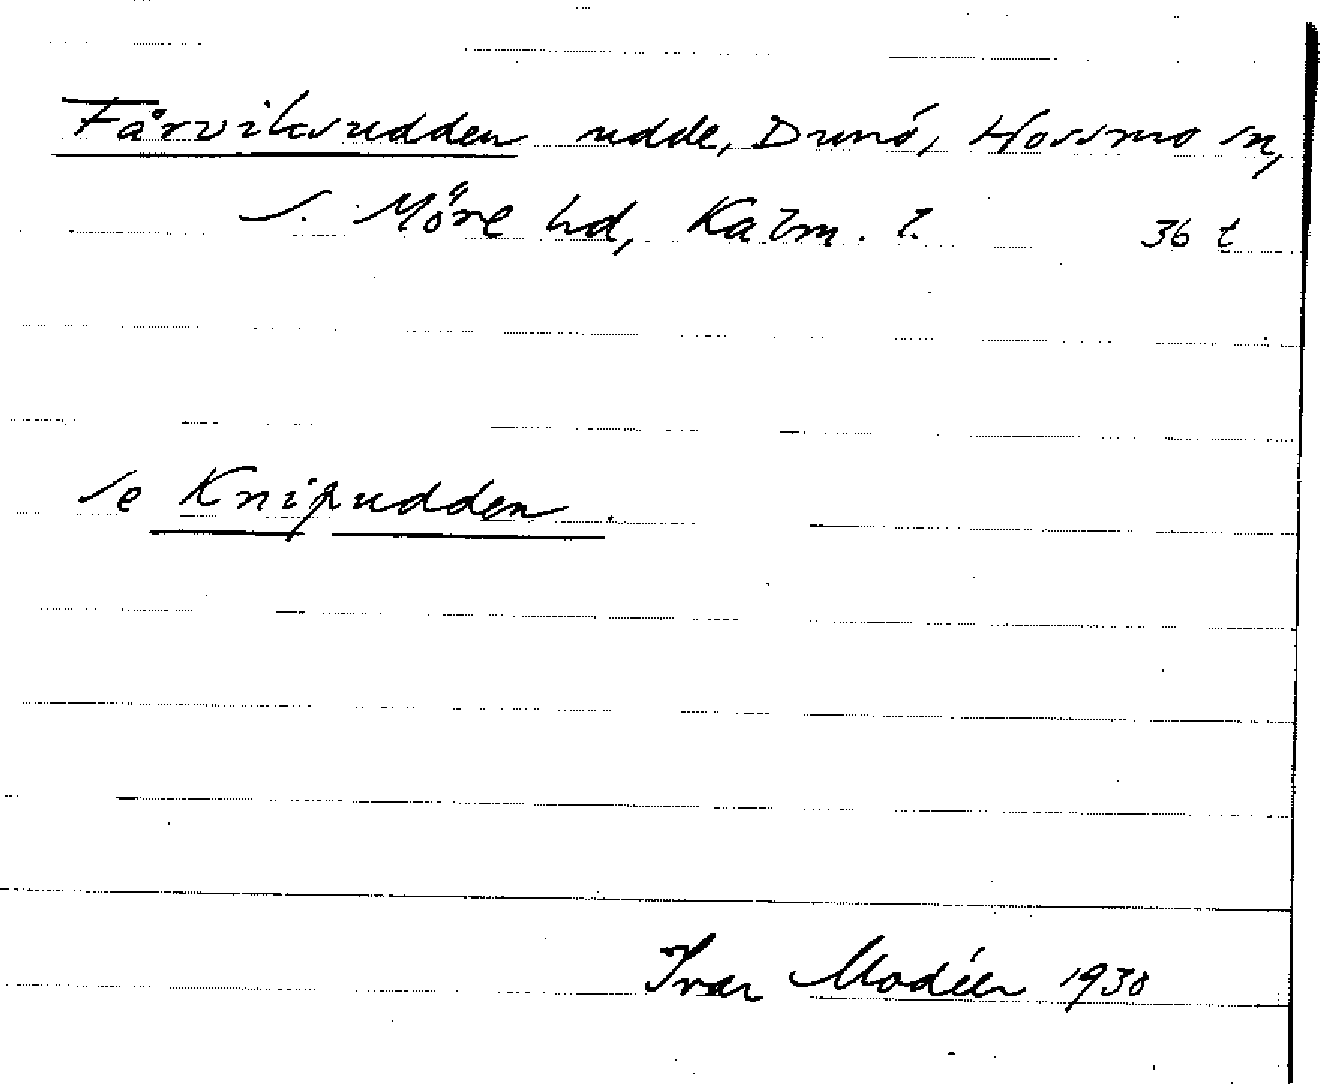 Fårviksudden udde, Dunö, Hossmo sn,
S. Möre hd, Kalm. l. 36 t
se Knipudden.
Ivar Modéer 1930